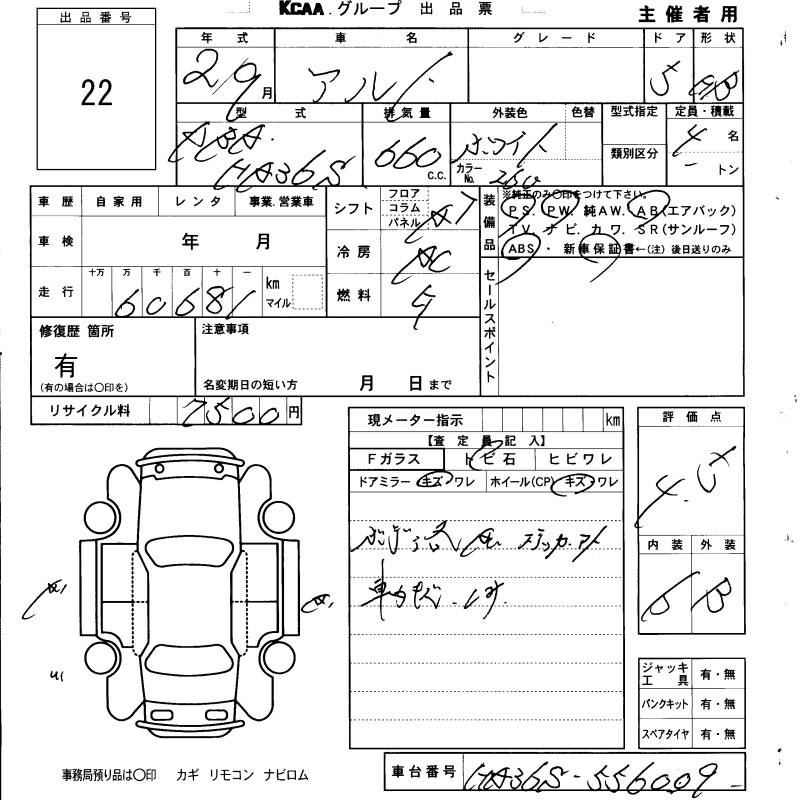 KCAA.グループ 出品票
主催者用
出品番号
22
年式 車名 グレード ドア 形状
29 月 アルト 5 HB
型式 排気量 外装色 色替 型式指定 定員・積載
DBA. 660 C.C. ホワイト 4 名
HA36S カラーNo. 類別区分 トン
車歴 自家用 レンタ 事業.営業車
車検 年 月
走行 十万 万 千 百 十 一
60681 km マイル
シフト フロア コラム パネル AT
冷房 AC
燃料
装備品 ※純正のみ〇印をつけて下さい。
PS. PW. 純AW. AB(エアバック)
TV. ナビ. カワ. SR(サンルーフ)
ABS ・ 新車保証書←(注)後日送りのみ
セールスポイント
修復歴 箇所
有
(有の場合は〇印を)
注意事項
名変期日の短い方 月 日まで
リサイクル料 7500 円
現メーター指示 km
【査定員記入】
Fガラス トビ石 ヒビワレ
ドアミラー キズ・ワレ ホイール(CP) キズ・ワレ
評価点
4.5
内装 外装
B B
ジャッキ 工具 有・無
パンクキット 有・無
スペアタイヤ 有・無
事務局預り品は〇印 カギ リモコン ナビロム
車台番号 HA36S-556009